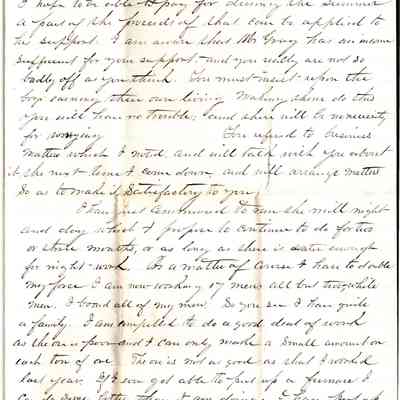 I hope to be able to pay for during the summer
a part of the proceeds of that can be applied to
his support. I am aware that Mr Gray has an income
sufficient for your support and you really are not so
badly off as you think. You must insist upon the
boys earning their own living. Making them do this
you will have no trouble, and there will be no necessity
for worrying You refered to business
matters which I noted, and will talk with you about
it the next time I come down, and will arrange matters
so as to make it satisfactory to you.
I have just commenced to run the mill night
and day which I propose to continue to do for two
or three months, or as long as there is water enough
for night work. As a matter of course I have to double
my force I am now working 17 men all but two white
men. I board all of my men. So you see I have quite
a family. I am compelled to do a good deal of work
as the ore is poor and I can only make a small amount on
each ton of ore. The ore is not as good as that I worked
last year. If I can get able to put up a furnace I
can do better than I am doing. I have kept up